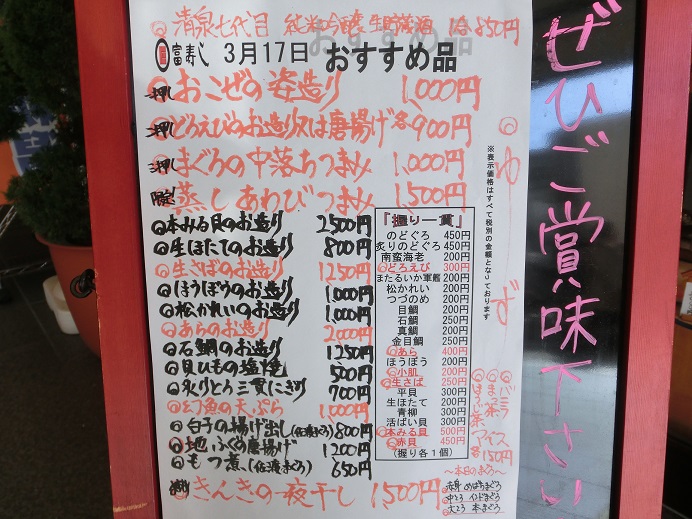 ◎清泉七代目 純米吟醸 生貯蔵酒 1合 850円
富寿し 3月17日 おすすめ品
一押し おこぜの姿造り 1,000円
二押し どろえびのお造り又は唐揚げ 各900円
三押し まぐろの中落ちつまみ 1,000円
限定! 蒸しあわびつまみ 1,500円
◎本みる貝のお造り 2500円
◎生ほたてのお造り 800円
◎生さばのお造り 1250円
◎ほうぼうのお造り 1,000円
◎松かれいのお造り 1,000円
◎あらのお造り 2,000円
◎石鯛のお造り 1250円
◎貝ひもの塩焼 500円
◎炙りとろ三貫(にぎり) 700円
◎幻魚の天ぷら 1,000円
◎白子の揚げ出し(佐渡まだら) 800円
◎地ふぐの唐揚げ 1200円
◎もつ煮(佐渡まだら) 650円
きんきの一夜干し 1,500円
『握り一貫』
のどぐろ 450円
炙りのどぐろ 450円
南蛮海老 200円
◎どろえび 300円
ほたるいか軍艦 200円
松かれい 200円
つづのめ 200円
目鯛 200円
石鯛 250円
真鯛 200円
金目鯛 250円
◎あら 400円
ほうぼう 200円
◎小肌 200円
◎生さば 250円
平貝 300円
生ほたて 200円
青柳 200円
活ばい貝 200円
◎本みる貝 500円
◎赤貝 450円
(握り各1個)
※表示価格はすべて税別の金額となっております
◎ゆず
◎バニラ
◎まっ茶
◎ほうじ茶
アイス
各150円
～本日のまぐろ～
赤身 めばちまぐろ
中とろ インドまぐろ
大とろ 本まぐろ
ぜひご賞味下さい